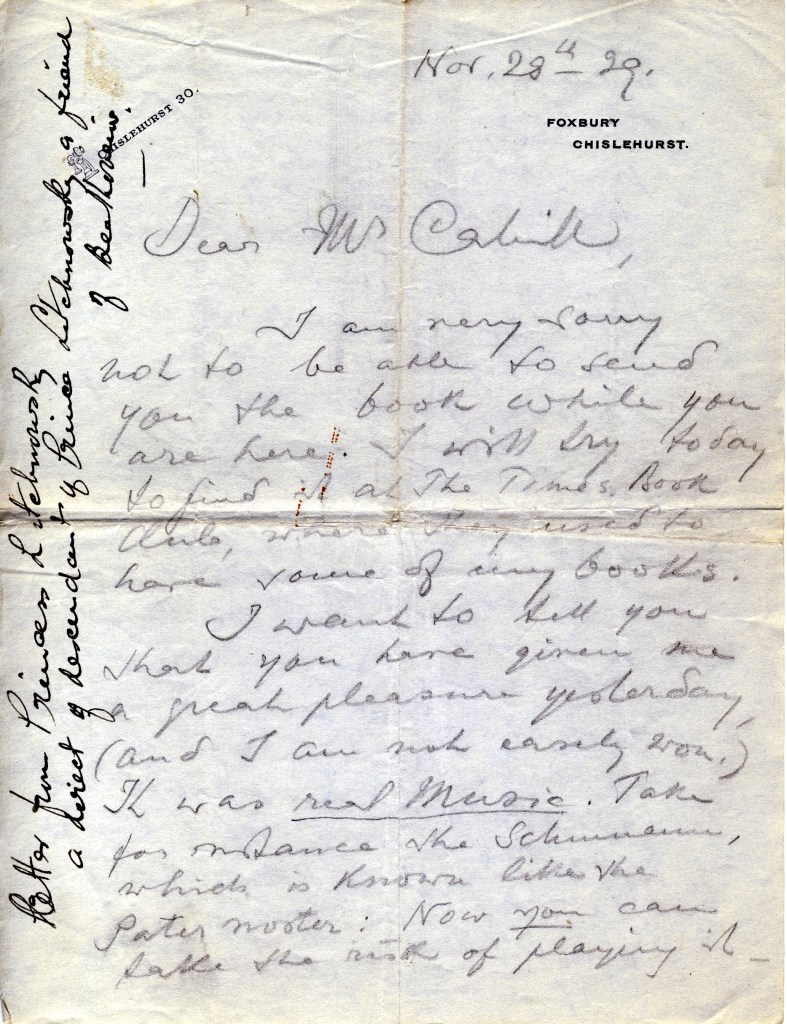 Nov. 28th 29.
CHISLEHURST 30.
FOXBURY
CHISLEHURST.
Dear Mr Cahill,
I am very sorry
not to be able to send
you the book while you
are here. I will try today
to find it at The Times Book
Club, where they used to
have some of my books.
I want to tell you
that you have given me
a great pleasure yesterday,
(and I am not easely won.)
It was real Music. Take
for instance the Schumann,
which is known like the
Pater noster: Now you can
take the risk of playing it –
Letter from Princess Litchnowsky
a direct descendant of Prince Litchnowsky a friend
of Beethoven.